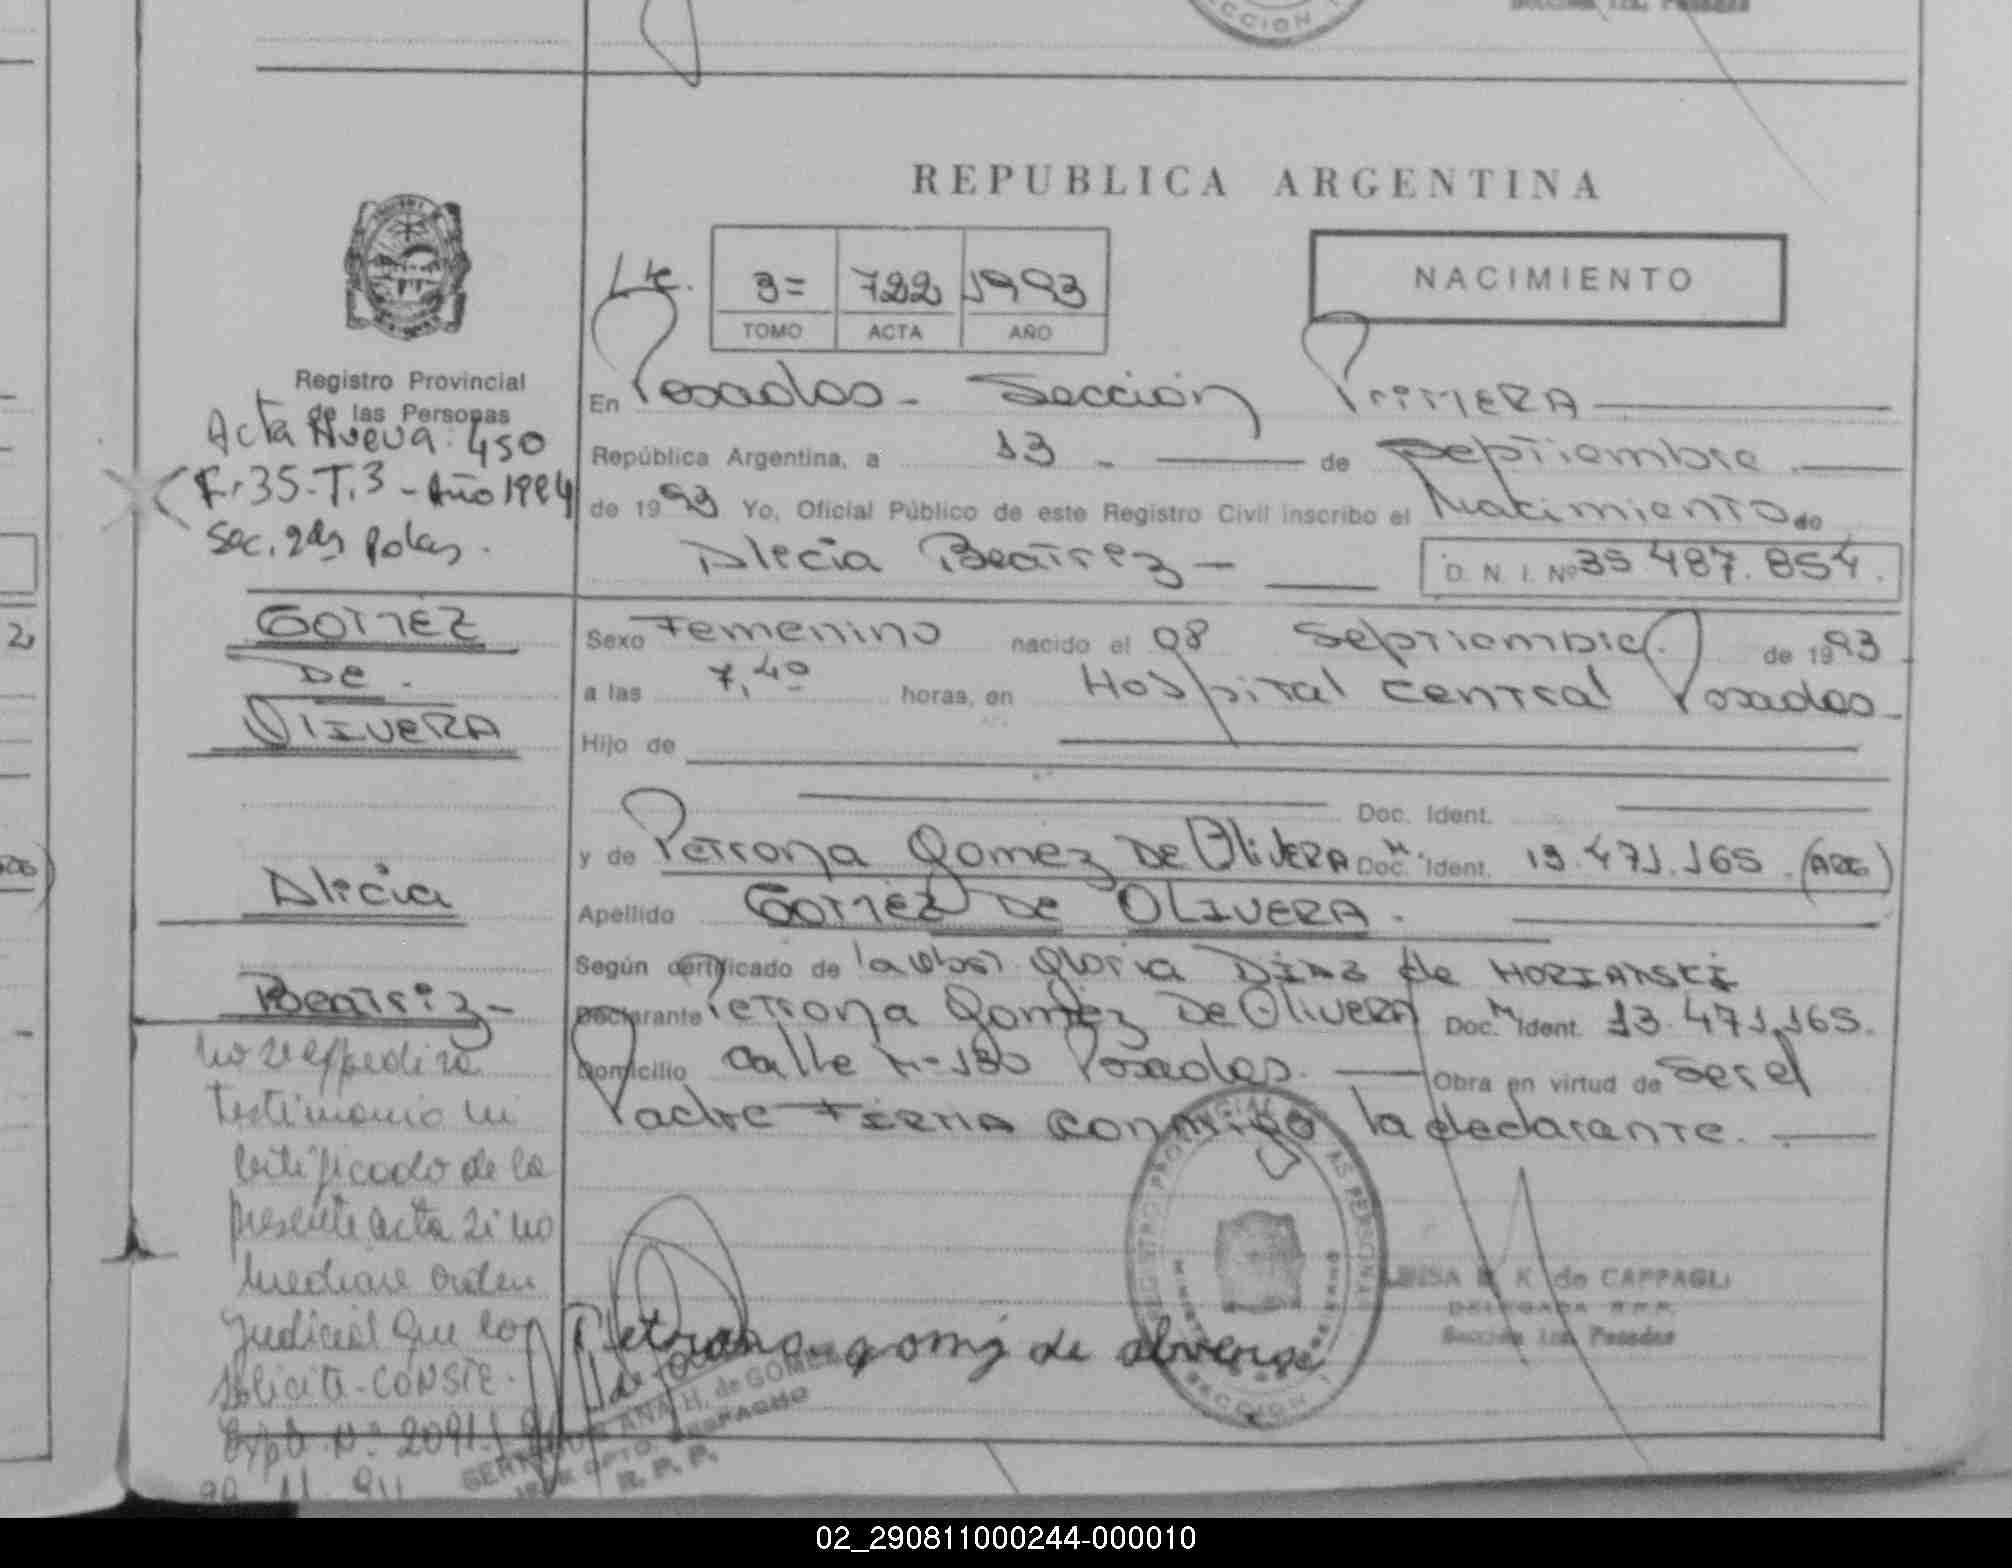 SECCION
Sección 1ra. Posadas
REPUBLICA ARGENTINA
3=
722
1993
TOMO
ACTA
AÑO
NACIMIENTO
Registro Provincial
de las Personas
Acta Nueva: 450
F. 35-T.3-Año 1994
Sec. 2da
En Posadas - Sección PriMERA
República Argentina, a 13 - de Septiembre
de 1993 Yo, Oficial Público de este Registro Civil inscribo el Nacimiento de
Alicia Beatriz - D. N. I. Nº 35 487. 854.
GOMEZ
DE.
OLIVERA
Alicia
Beatriz-
Sexo Femenino nacido el 08 Septiembre de 1993
a las 7,40 horas, en Hospital central Posadas
Hijo de
Doc. Ident.
y de Petrona Gomez De OliVERA Doc. Ident. 13.471.165. (ARG)
Apellido GOMEZ De OLIVERA.
Según certificado de la obst. Gloria DIAZ de
Declarante Petrona Gomez De OliverA Doc. Ident. 13.471.165.
Domicilio calle N-130 Posadas. Obra en virtud de Ser el
Padre FIRMA conmigo la declarante.
no se expedirá
testimonio ni
certificado de la
presente acta si no
mediare orden
judicial que lo
solicite-CONSTE.
Expd. Nº 2091
Petrona gomez de olivera
REGISTRO PROVINCIAL DE LAS PERSONAS
SECCION 1
K de CAPPAGLI
DELEGADA R.P.P.
Sección 1ra. Posadas
ANA H. de GOMEZ
JEFE DPTO.
R. P. P.
02_290811000244-000010